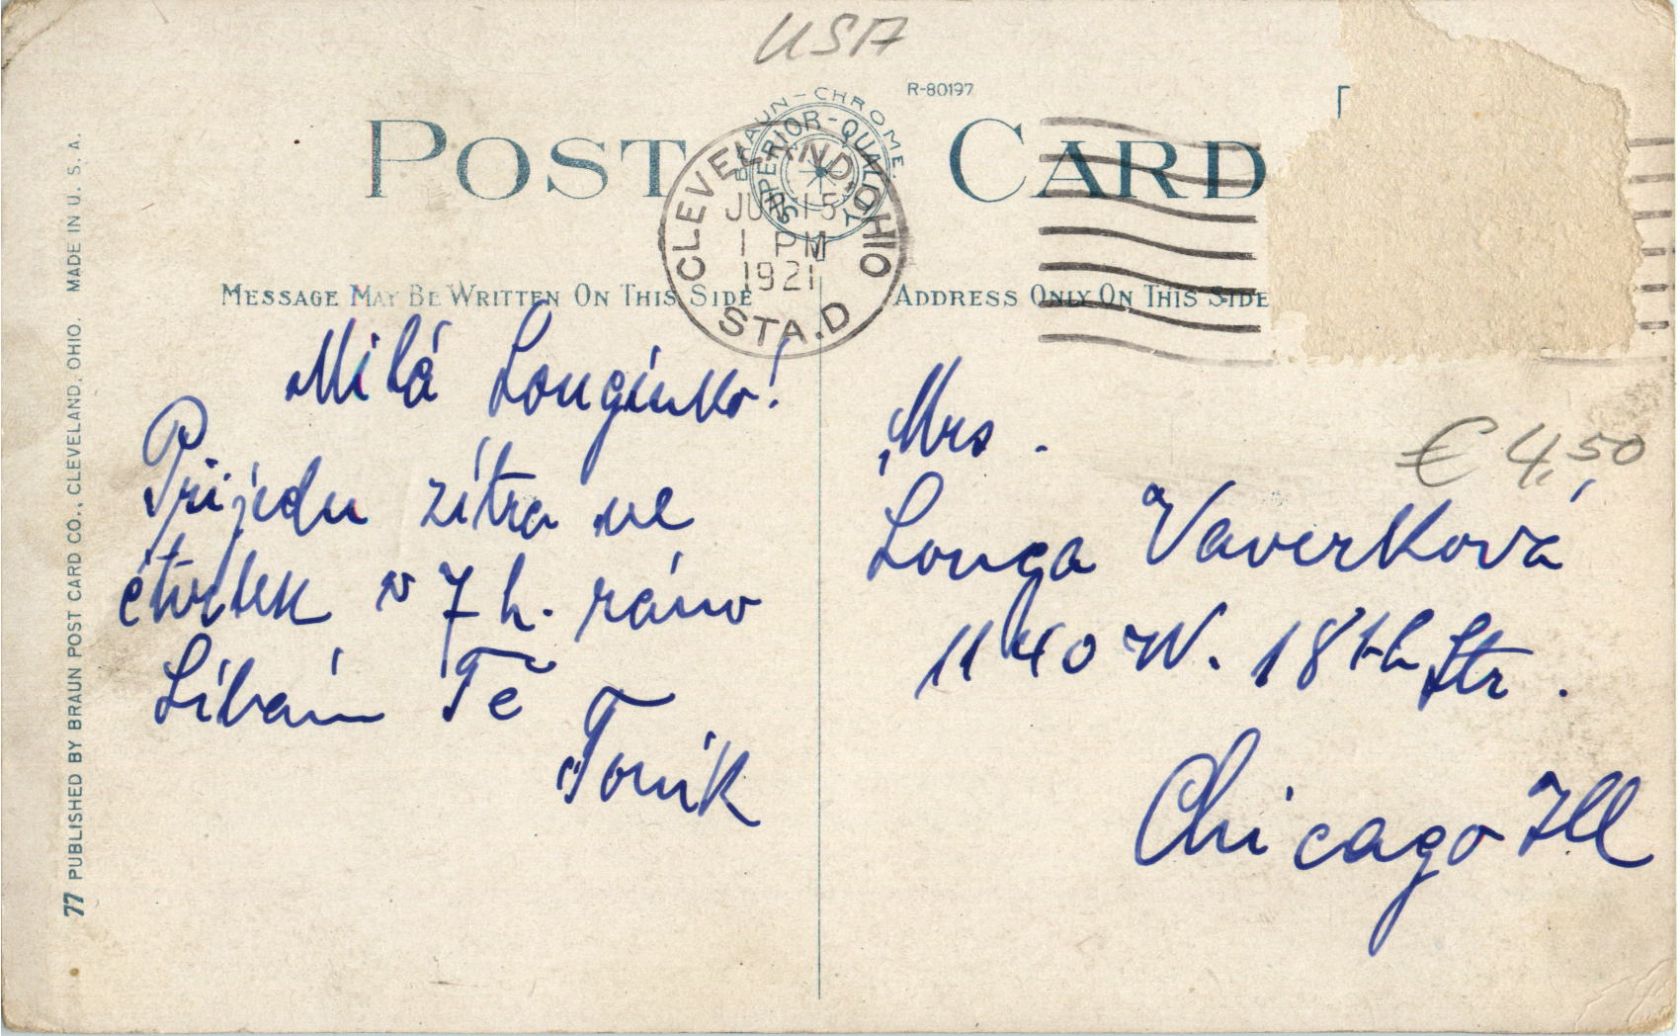 USA
R-80197
POST CARD
BRAUN-CHROME
SUPERIOR-QUALITY
CLEVELAND, OHIO
JUN 15
1 PM
1921
STA. D
MESSAGE MAY BE WRITTEN ON THIS SIDE
ADDRESS ONLY ON THIS SIDE
Milá Louginko!
Přijedu zítra ve
čtvrtek v 7 h. ráno
Líbám Tě
Toník
Mrs.
Louga Vaverková
1140 W. 18th Str.
Chicago Ill
€ 4,50
77 PUBLISHED BY BRAUN POST CARD CO., CLEVELAND, OHIO. MADE IN U. S. A.